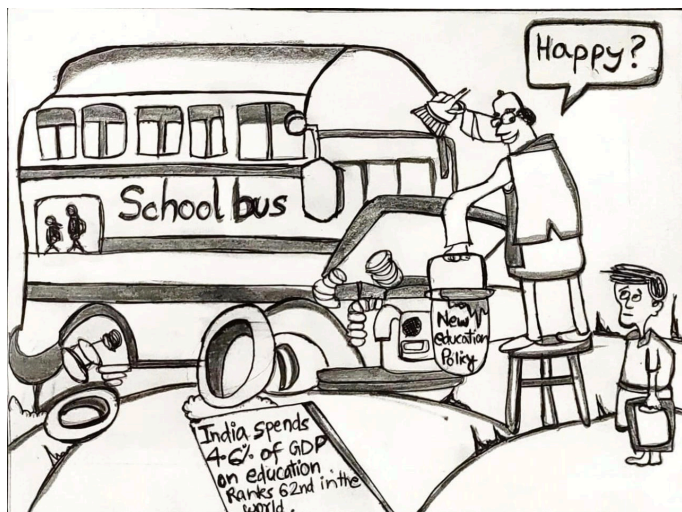 Happy?
School bus
New
education
Policy
India spends
4.6% of GDP
on education
Ranks 62nd in the
world.